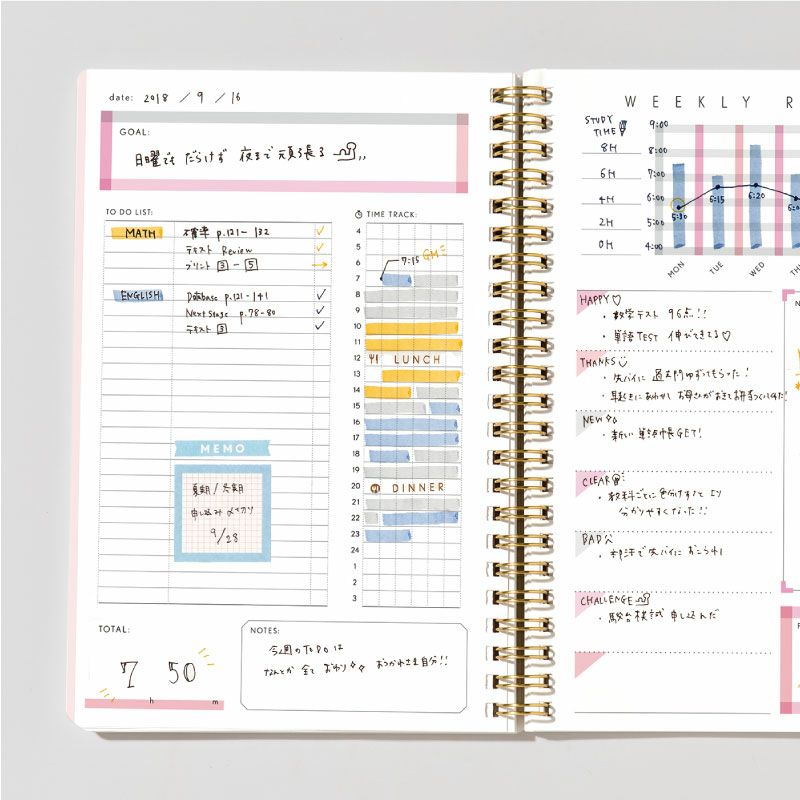 date: 2018 / 9 / 16
GOAL:
日曜でも だらけず 夜まで 頑張る
TO DO LIST:
MATH
確率 p.121- 132
テキスト Review
プリント 3 - 5
ENGLISH
Database p.121-141
Next Stage p.78-80
テキスト 3
MEMO
夏期/冬期
申し込み〆イカリ
9/28
TIME TRACK:
4
5
6
7:15 GM
7
8
9
10
11
12 LUNCH
13
14
15
16
17
18
19
20 DINNER
21
22
23
24
1
2
3
TOTAL:
7 h 50 m
NOTES:
今週のToDoは
なんとか 全て おわり おつかれさま自分!!
WEEKLY R
STUDY TIME
8H
6H
4H
2H
0H
9:00
8:00
7:00
6:00
5:00
4:00
5:30
6:15
6:20
6:0
MON
TUE
WED
THU
HAPPY♡
・数学テスト 96点!!
・単語TEST 伸びてきてる♡
THANKS
・先パイに 過去問ゆずってもらった!
・早起きにあわせて お母さんがおきてお弁当つくってくれた!
NEW
・新しい 単語帳GET!
CLEAR
・教科ごとに色分けすると より
分かりやすくなった!!
BAD
・部活で先パイに おこられ
CHALLENGE
・駿台模試 申し込んだ